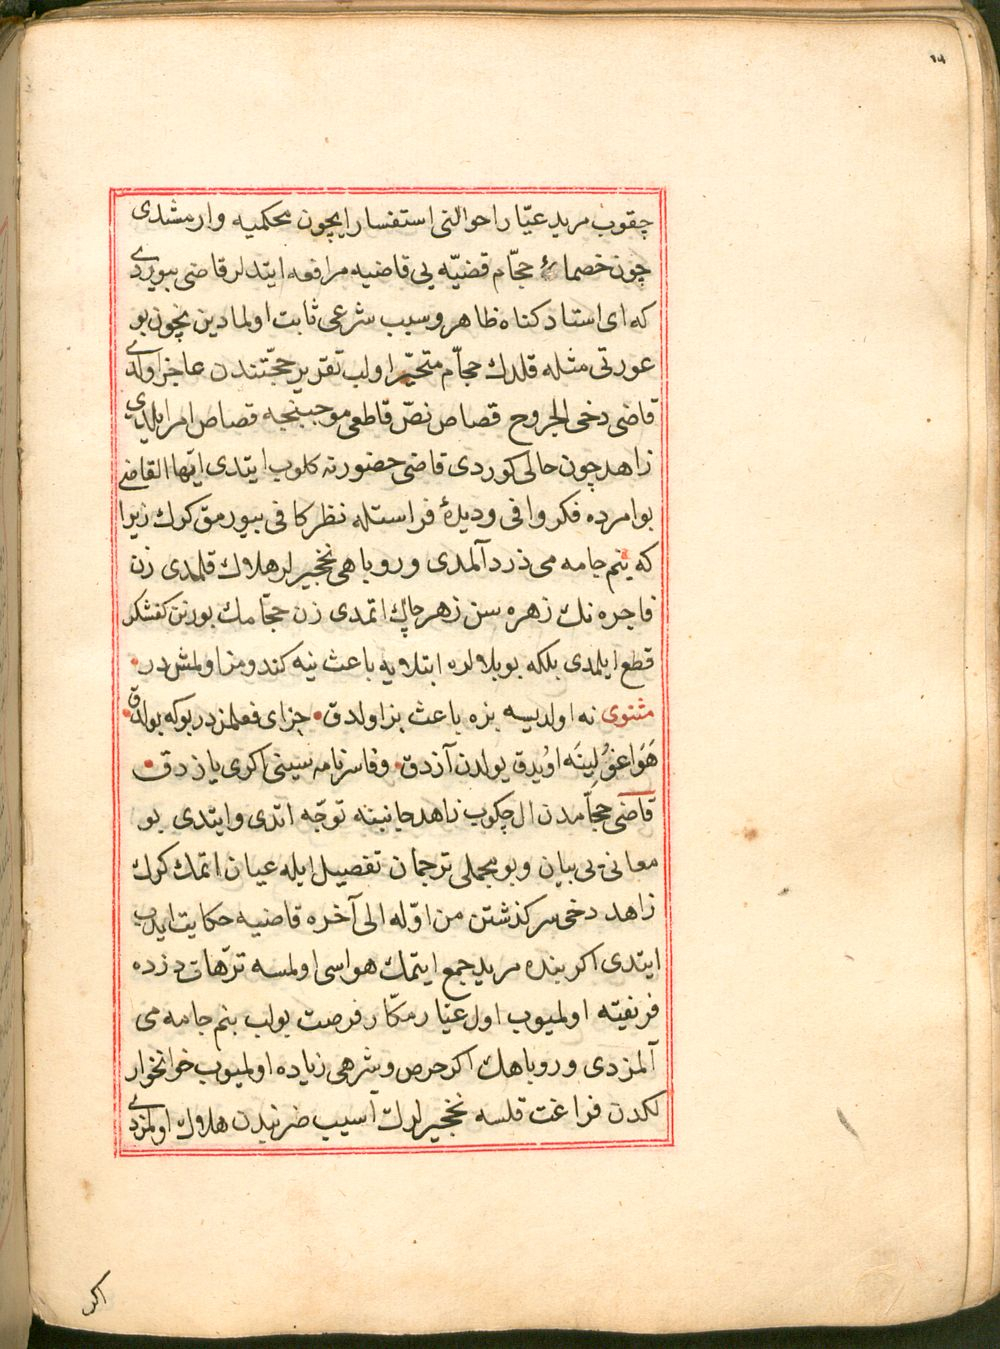 ١٨
چقوب مريد عيّار احوالنى استفسار ايچون محكميه وارمشدى
چون خصماء حجّام قضيّه يى قاضيه مرافعه ايتدلر قاضى بيوردى
كه اى استاد كناه ظاهر و سبب شرعى ثابت اولمادين نچون بو
عورتى مثله قلدك حجاّم متحيّر اولب تقرير حجّتندن عاجز اولدى
قاضى دخى الجروح قصاص نصّ قاطعى موجبنجه قصاص امر ايلدى
زاهد چون حالى كوردى قاضى حضورنه كلوب ايتدى ايّها القاضى
بو امرده فكر وافى و ديدۀ فراستله نظر كافى بيورمق كرك زيرا
كه بنم جامه مى دزد آلمدى و روباهى نخچيرلر هلاك قلمدى زن
فاجره نك زهره سن زهر چاك اتمدى زن حجّامك بورنن كفشكر
قطع ايلمدى بلكه بو بلالره ابتلايه باعث ينه كندومز اولمش در
مثنوى نه اولديسه بزه باعث بز اولدق جزاى فعلمزدر بو كه بولدق
هَوَا غَوُلِينَه اُويدق يولدن آزدق وفا سرنامه سينى اكرى يازدق
قاضى حجّامدن ال چكوب زاهد جانبنه توجّه اتدى و ايتدى بو
معانى يى بيان و بو مجملى ترجمان تفصيل ايله عيان اتمك كرك
زاهد دخى سركذشتن من اوّله الى آخره قاضيه حكايت ايدب
ايتدى اكر بنده مريد جمع ايتمك هواسى اولمسه ترّهات دزده
فريفته اولميوب اول عيّار مكّار فرصت بولب بنم جامه مى
آلمزدى و روباهك اكر حرص و شرهى زياده اولميوب خوانخوار
لكدن فراغت قلسه نخچيرلرك آسيب ضربندن هلاك اولمزدى
اكر